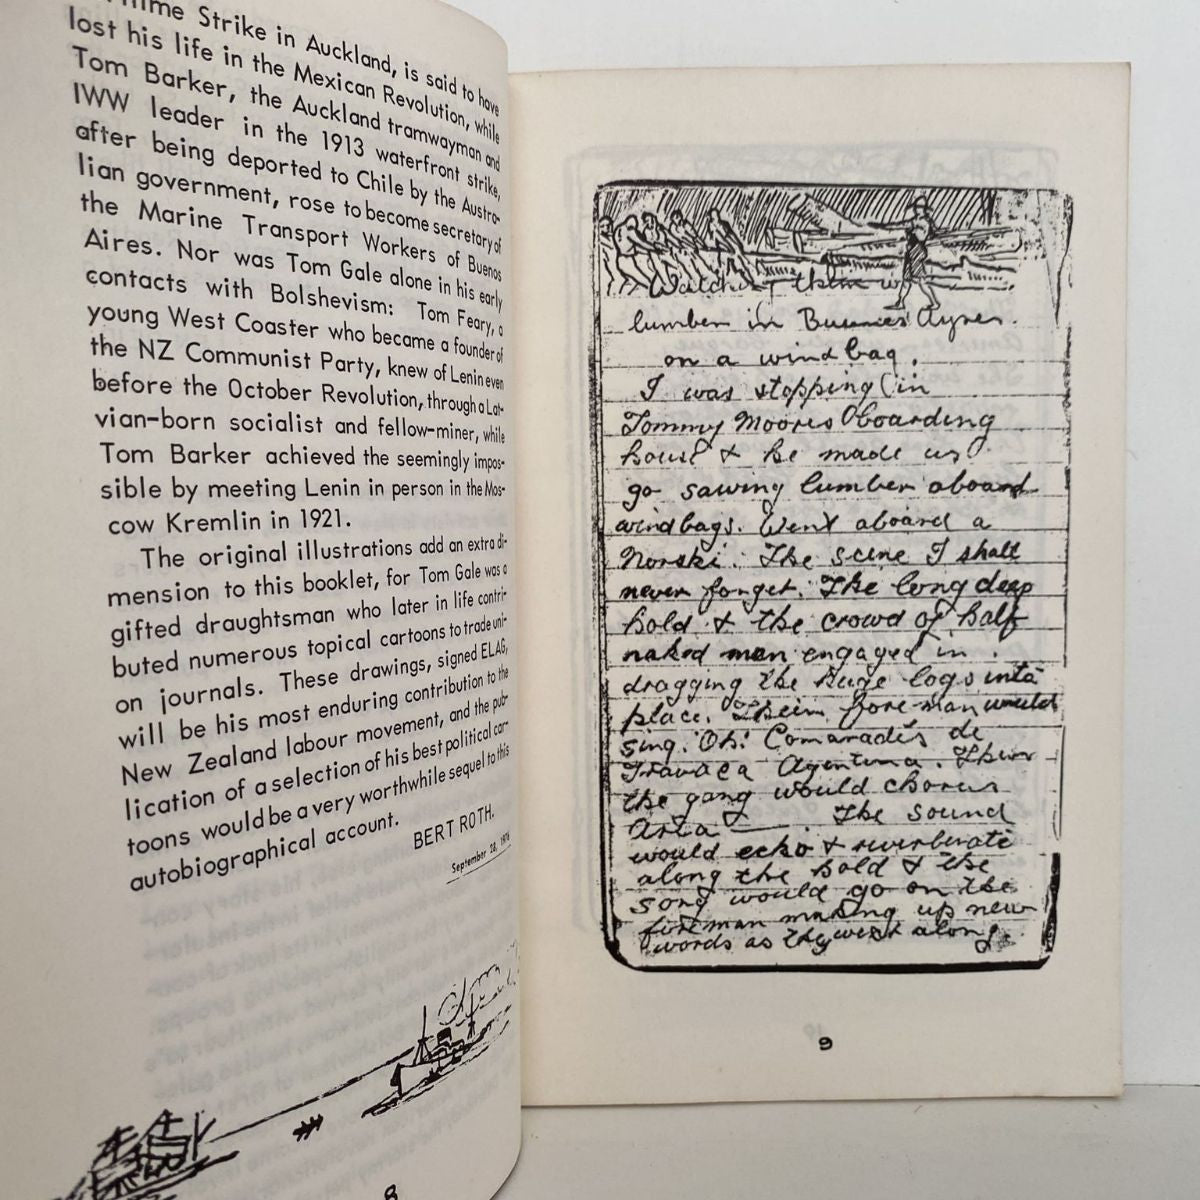 time Strike in Auckland, is said to have
lost his life in the Mexican Revolution, while
Tom Barker, the Auckland tramwayman and
IWW leader in the 1913 waterfront strike,
after being deported to Chile by the Austra-
lian government, rose to become secretary of
the Marine Transport Workers of Buenos
Aires. Nor was Tom Gale alone in his early
contacts with Bolshevism: Tom Feary, a
young West Coaster who became a founder of
the NZ Communist Party, knew of Lenin even
before the October Revolution, through a Lat-
vian-born socialist and fellow-miner, while
Tom Barker achieved the seemingly impos-
sible by meeting Lenin in person in the Mos-
cow Kremlin in 1921.
The original illustrations add an extra di-
mension to this booklet, for Tom Gale was a
gifted draughtsman who later in life contri-
buted numerous topical cartoons to trade uni-
on journals. These drawings, signed ELAG,
will be his most enduring contribution to the
New Zealand labour movement, and the pub-
lication of a selection of his best political car-
toons would be a very worthwhile sequel to this
autobiographical account.
BERT ROTH.
September 28, 1976
8
Watching them
lumber in Buenos Ayres.
on a wind bag.
I was stopping in
Tommy Moores boarding
house & he made us
go sawing lumber aboard
windbags. Went aboard a
Norski. The scene I shall
never forget. The long deep
hold & the crowd of half
naked men engaged in
dragging the huge logs into
place. Their foreman would
sing. Oh! Comarades de
Travaca Agentina. Then
the gang would chorus
Aria — The sound
would echo & reverberate
along the hold & the
song would go on the
foreman making up new
words as they went along.
9